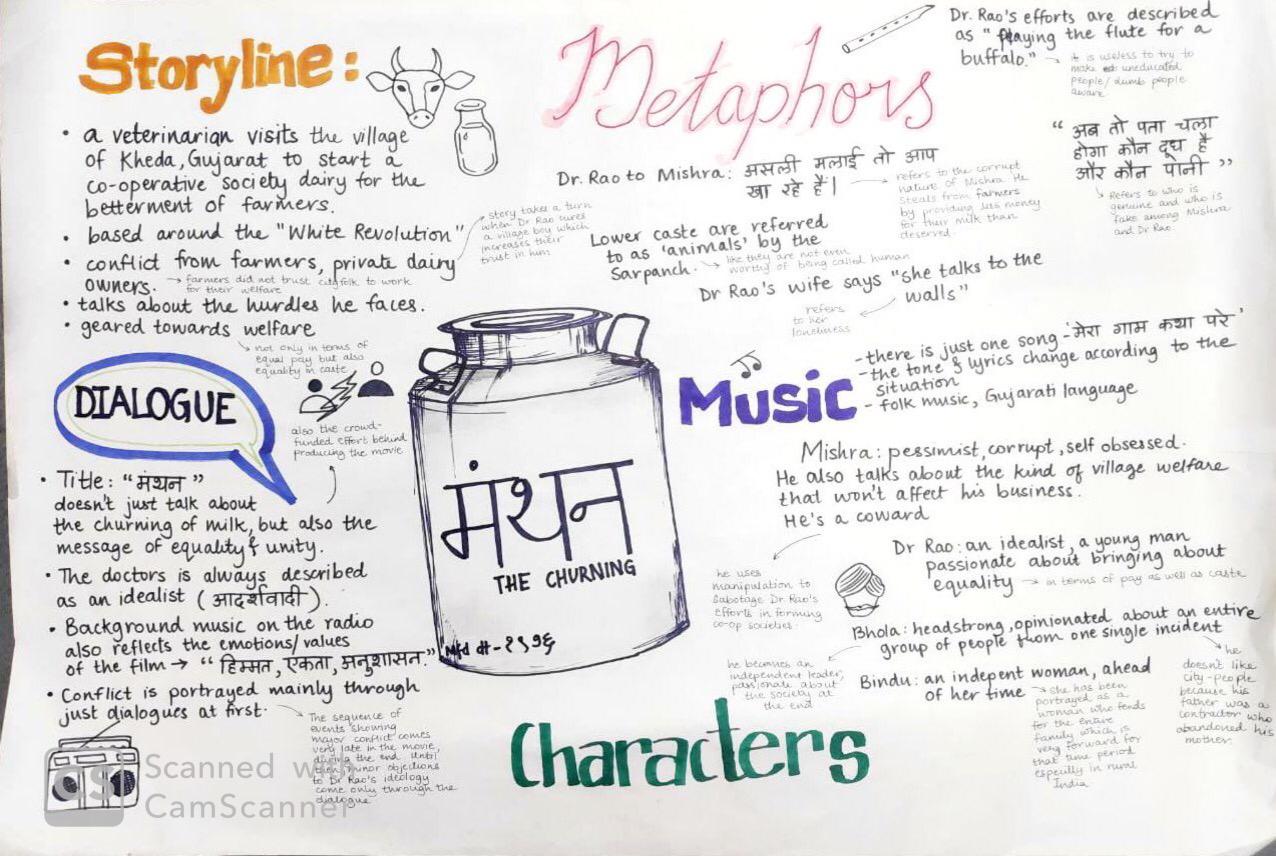 Storyline:
• a veterinarian visits the village
of Kheda, Gujarat to start a
co-operative society dairy for the
betterment of farmers.
• based around the "White Revolution"
• conflict from farmers, private dairy
owners.
→ farmers did not trust city folk to work
for their welfare
story takes a turn
when Dr Rao cures
a village boy which
increases their
trust in him
• talks about the hurdles he faces.
• geared towards welfare
not only in terms of
equal pay but also
equality in caste
DIALOGUE
also the crowd-
funded effort behind
producing the movie
• Title: "मंथन"
doesn't just talk about
the churning of milk, but also the
message of equality & unity.
• The doctors is always described
as an idealist (आदर्शवादी).
• Background music on the radio
also reflects the emotions/values
of the film → "हिम्मत, एकता, अनुशासन."
• Conflict is portrayed mainly through
just dialogues at first.
The sequence of
events showing
major conflict comes
very late in the movie,
during the end. Until
then minor objections
to Dr Rao's ideology
come only through the
dialogue
Scanned with
CamScanner
CS
मंथन
THE CHURNING
Mfd dt - १९७६
Metaphors
Dr. Rao's efforts are described
as "playing the flute for a
buffalo."
it is useless to try to
make uneducated
people/dumb people
aware
Dr. Rao to Mishra: असली मलाई तो आप
खा रहे हैं।
refers to the corrupt
nature of Mishra. He
steals from farmers
by providing less money
for their milk than
deserved.
"अब तो पता चला
होगा कौन दूध है
और कौन पानी"
Refers to who is
genuine and who is
fake among Mishra
and Dr Rao.
Lower caste are referred
to as 'animals' by the
Sarpanch.
like they are not even
worthy of being called human
Dr Rao's wife says "she talks to the
walls"
refers
to her
loneliness
Music
- there is just one song - 'मेरा गाम कथा परे'
- the tone & lyrics change according to the
situation
- folk music, Gujarati language
Mishra: pessimist, corrupt, self obsessed.
He also talks about the kind of village welfare
that won't affect his business.
He's a coward
he uses
manipulation to
sabotage Dr. Rao's
efforts in forming
co-op societies.
Dr Rao: an idealist, a young man
passionate about bringing about
equality → in terms of pay as well as caste
Bhola: headstrong, opinionated about an entire
group of people from one single incident
he becomes an
independent leader,
passionate about
the society at
the end
he
doesn't like
city-people
because his
father was a
contractor who
abandoned his
mother.
Bindu: an indepent woman, ahead
of her time
she has been
portrayed as a
woman who fends
for the entire
family which is
very forward for
that time period
especilly in rural
India
Characters